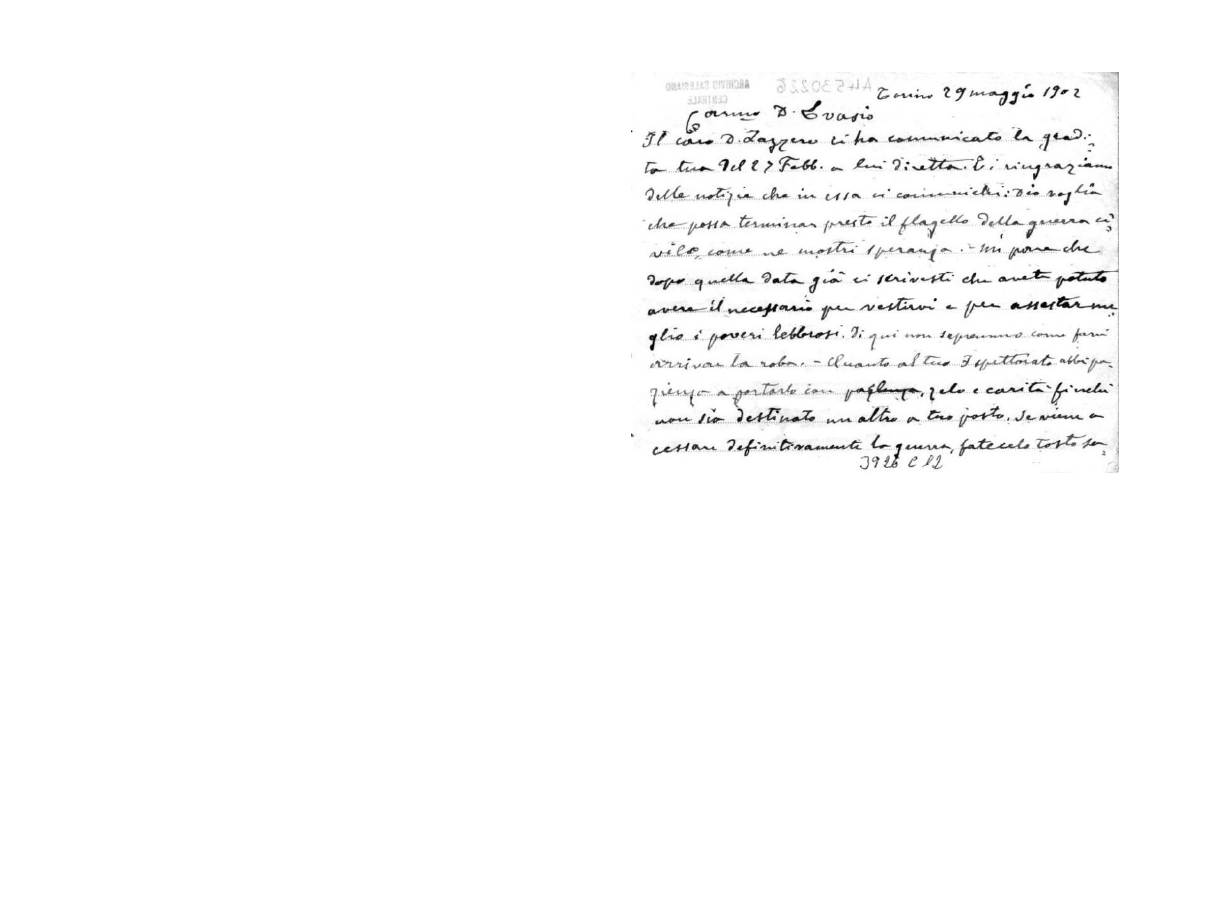 ARCHIVIO SALESIANO
CENTRALE
A4530226
Torino 29 maggio 1902
Carmo D. Evasio
Il caro D. Lazzero ci ha comunicato la gradi-
ta tua del 27 Febb. a lui diretta. Ti ringraziamo
delle notizie che in essa ci comunichi: Dio voglia
che possa terminar presto il flagello della guerra ci-
vile, come ne mostri speranza. - Mi pare che
dopo quella data già ci scrivesti che avete potuto
avere il necessario per vestirvi e per assestar me
glio i poveri lebbrosi. Di qui non sapremmo come farvi
arrivar la roba. - Quanto al tuo Ispettorato abbi pa-
zienza a portarlo con pazienza, zelo e carità finchè
non sia destinato un altro a tuo posto. Se viene a
cessare definitivamente la guerra, fatecelo tosto sa-
3926 C 12